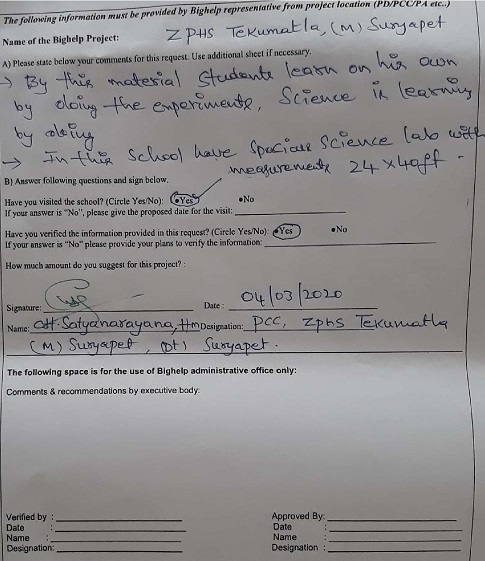 The following information must be provided by Bighelp representative from project location (PD/PCC/PA etc..)
Name of the Bighelp Project: ZPHS Tekumatla, (M) Suryapet
A) Please state below your comments for this request. Use additional sheet if necessary.
→ By this material students learn on his own
by doing the experiments, Science is learning
by doing
→ In this School have Spacious Science lab with
measurements 24 x 40ft -
B) Answer following questions and sign below.
Have you visited the school? (Circle Yes/No): •Yes •No
If your answer is "No", please give the proposed date for the visit:
Have you verified the information provided in this request? (Circle Yes/No): •Yes •No
If your answer is "No" please provide your plans to verify the information:
How much amount do you suggest for this project? :
Signature: Date: 04/03/2020
Name: CH. Satyanarayana, Hm Designation: PCC, ZPHS Tekumatla
(M) Suryapet, (Dt) Suryapet.
The following space is for the use of Bighelp administrative office only:
Comments & recommendations by executive body:
Verified by : Approved By:
Date : Date :
Name : Name :
Designation: Designation :